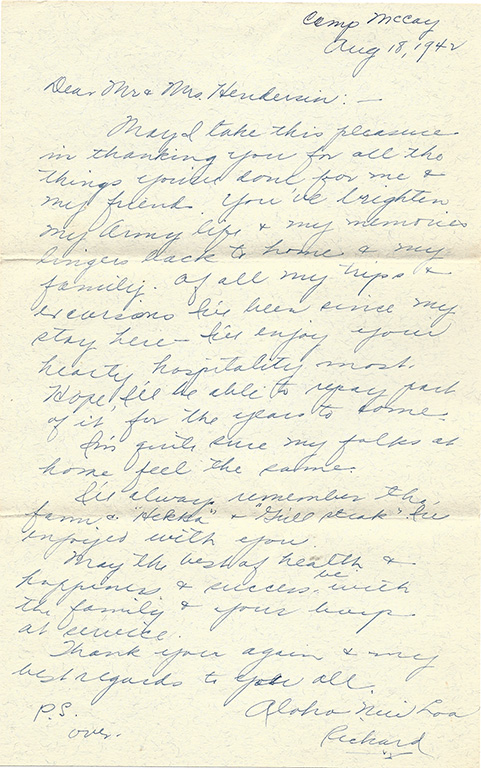 Camp McCoy
Aug 18, 1942
Dear Mr & Mrs. Henderson: —
May I take this pleasure
in thanking you for all the
things you've done for me &
my friend. You've brighten
my Army life & my memories
lingers back to home & my
family. Of all my trips &
excursions I've been since my
stay here — I've enjoy your
hearty hospitality most.
Hope I'll be able to repay part
of it for the years to come.
I'm quite sure my folks at
home feel the same.
I'll always remember the
farm, & "Hekka" & "Grill steak" I've
enjoyed with you.
May the best of health &
happiness & success be with
the family & your boys
at service.
Thank you again & my
best regards to you all.
Aloha Nui Loa
Richard
P.S.
over.